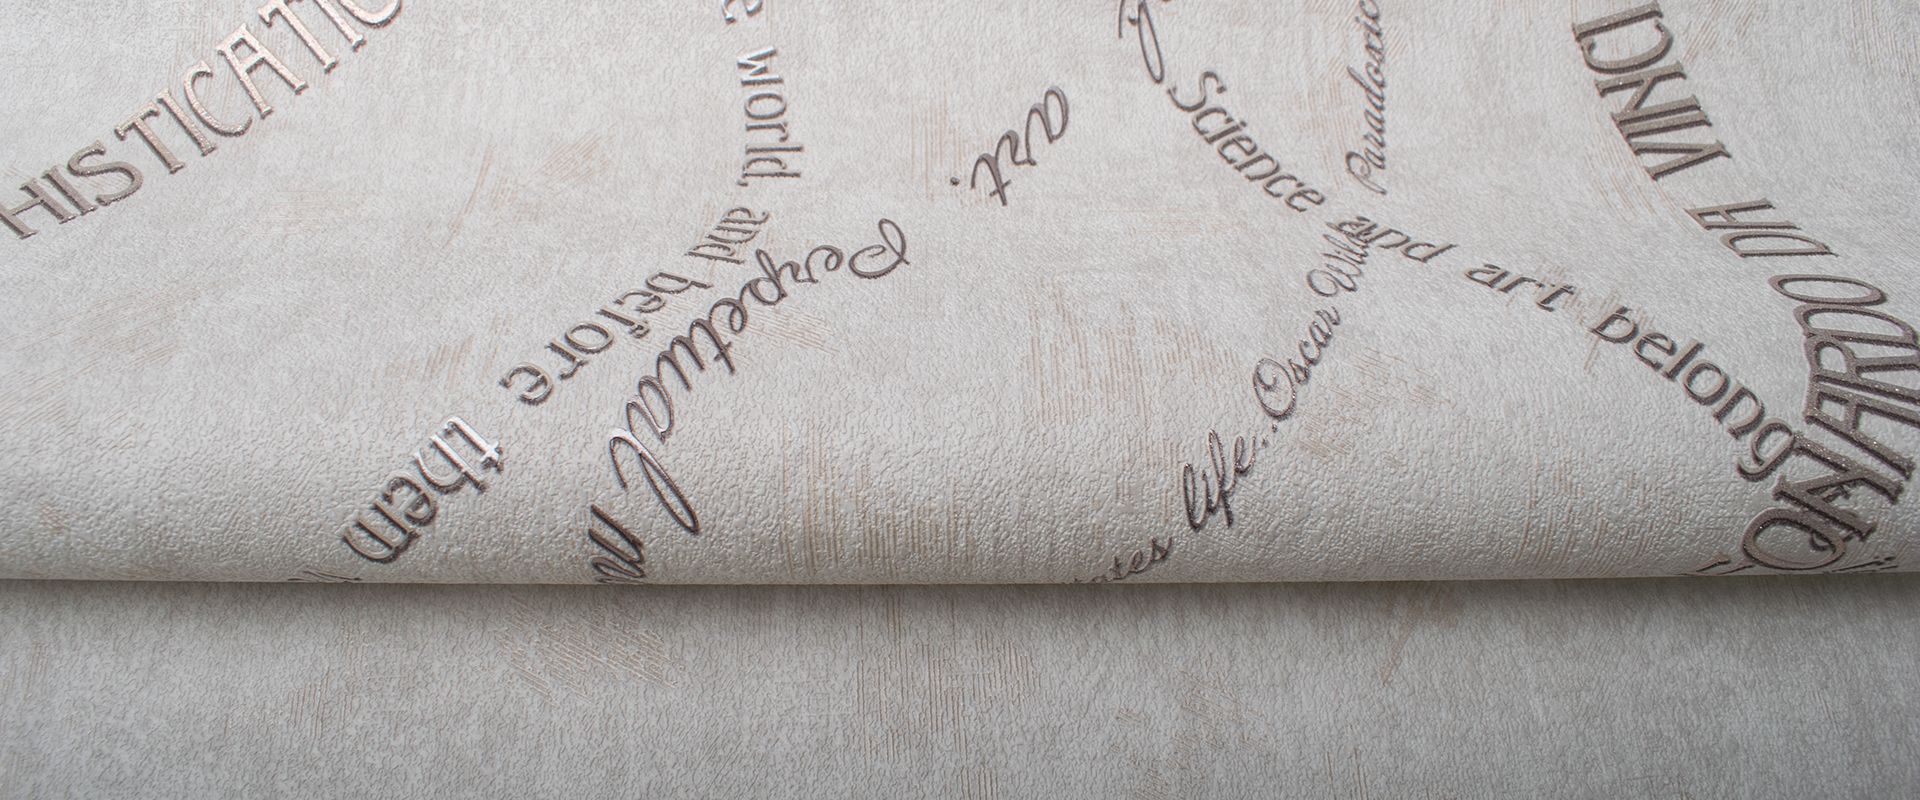 HISTICATIO
world, and before them
art.
Perpetual m
Science and art belong
Paradoxic
ates life...Oscar Wilde
LEONARDO DA VINCI